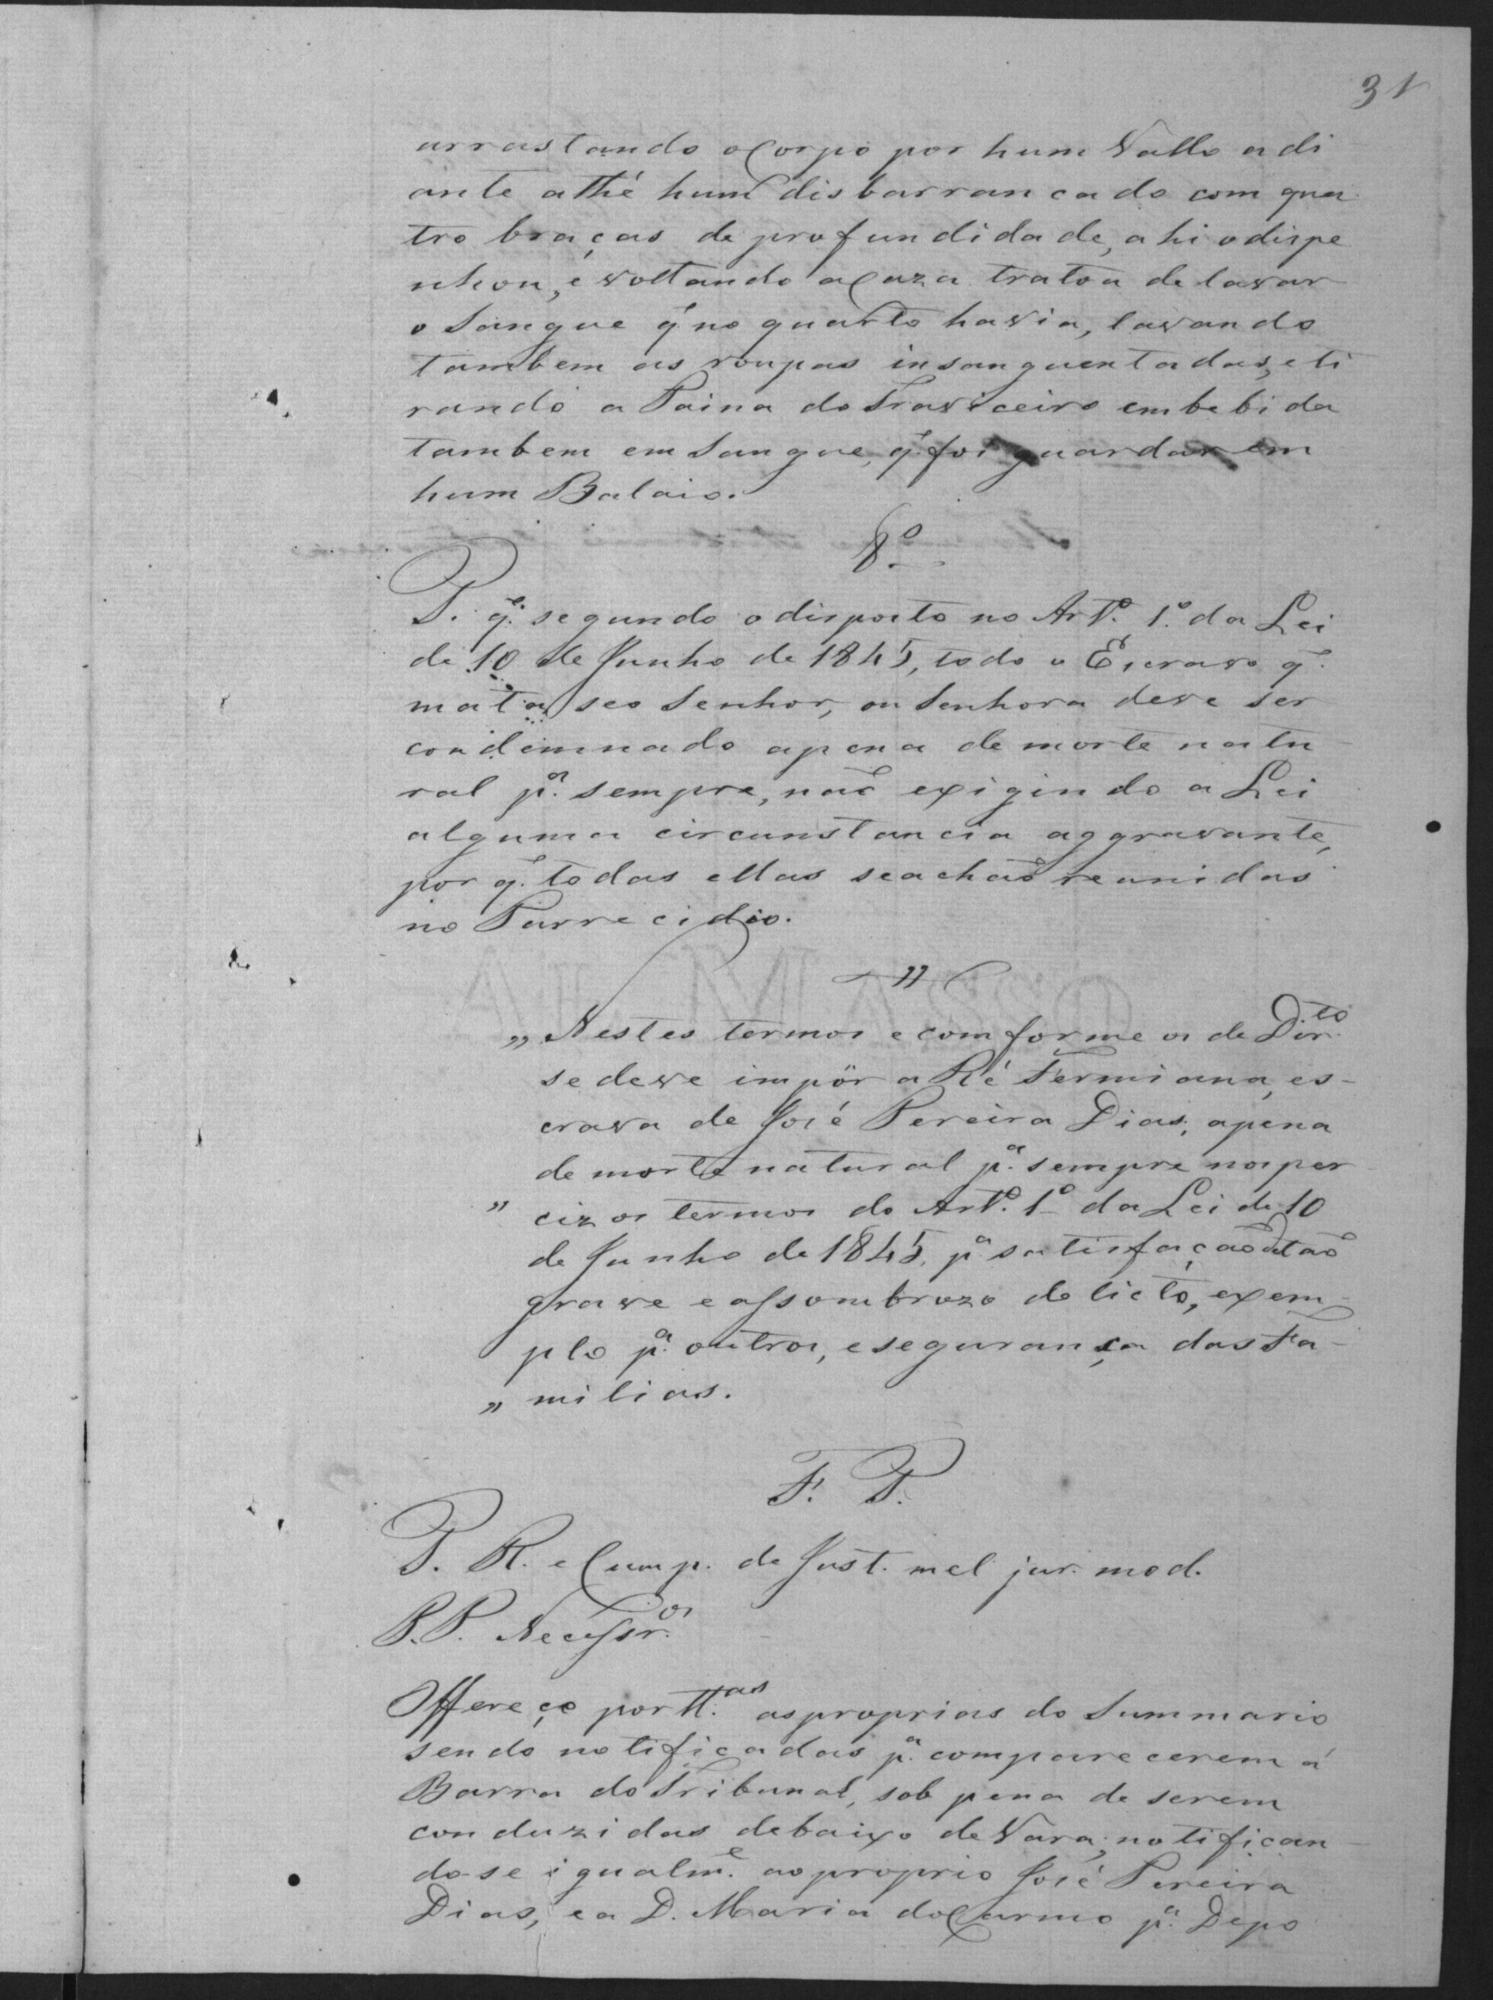 31
arrastando o Corpo por hum Vallo adi
ante athé hum disbarrancado com qua
tro braças de profundidade, ahi o dispe
nhou, e voltando a Caza tratou de lavar
o Sangue q̃ no quarto havia, lavando
tambem as roupas insanguentadas, e ti
rando a Paina do Traviceiro embebida
tambem em Sangue, q̃ foi guardar em
hum Balaio.
8.º
P. q̃. segundo o disposto no Art.º 1.º da Lei
de 10 de Junho de 1845, todo o Escravo q̃.
mata seo Senhor, ou Senhora deve ser
condemnado apena de morte natu
ral p.ª sempre, naõ exigindo a Lei
alguma circunstancia aggravante,
por q̃. todas ellas se achaõ reunidas
no Parrecidio.
"
„ Nestes termos e comforme os de Dir.to
se deve impôr a Ré Fermiana, es-
crava de José Pereira Dias, apena
de morte natural p.ª sempre nos per
" cizos termos do Art.º 1º da Lei de 10
de Junho de 1845, p.ª satisfaçaõ de taõ
grave e assombrozo delicto, exem-
plo p.ª outros, e segurança das Fa-
„ milias.
F. P.
P. R. e Cump. de Just. mel jur. mod.
P. P. Necessr.os
Offereço por tt.as as proprias do Summario
sendo notificadas p.ª comparecerem á
Barra do Tribunal, sob pena de serem
conduzidas debaixo de Vara, notifican-
do-se igualm.e ao proprio José Pereira
Dias, e a D. Maria do Carmo p.ª Depo